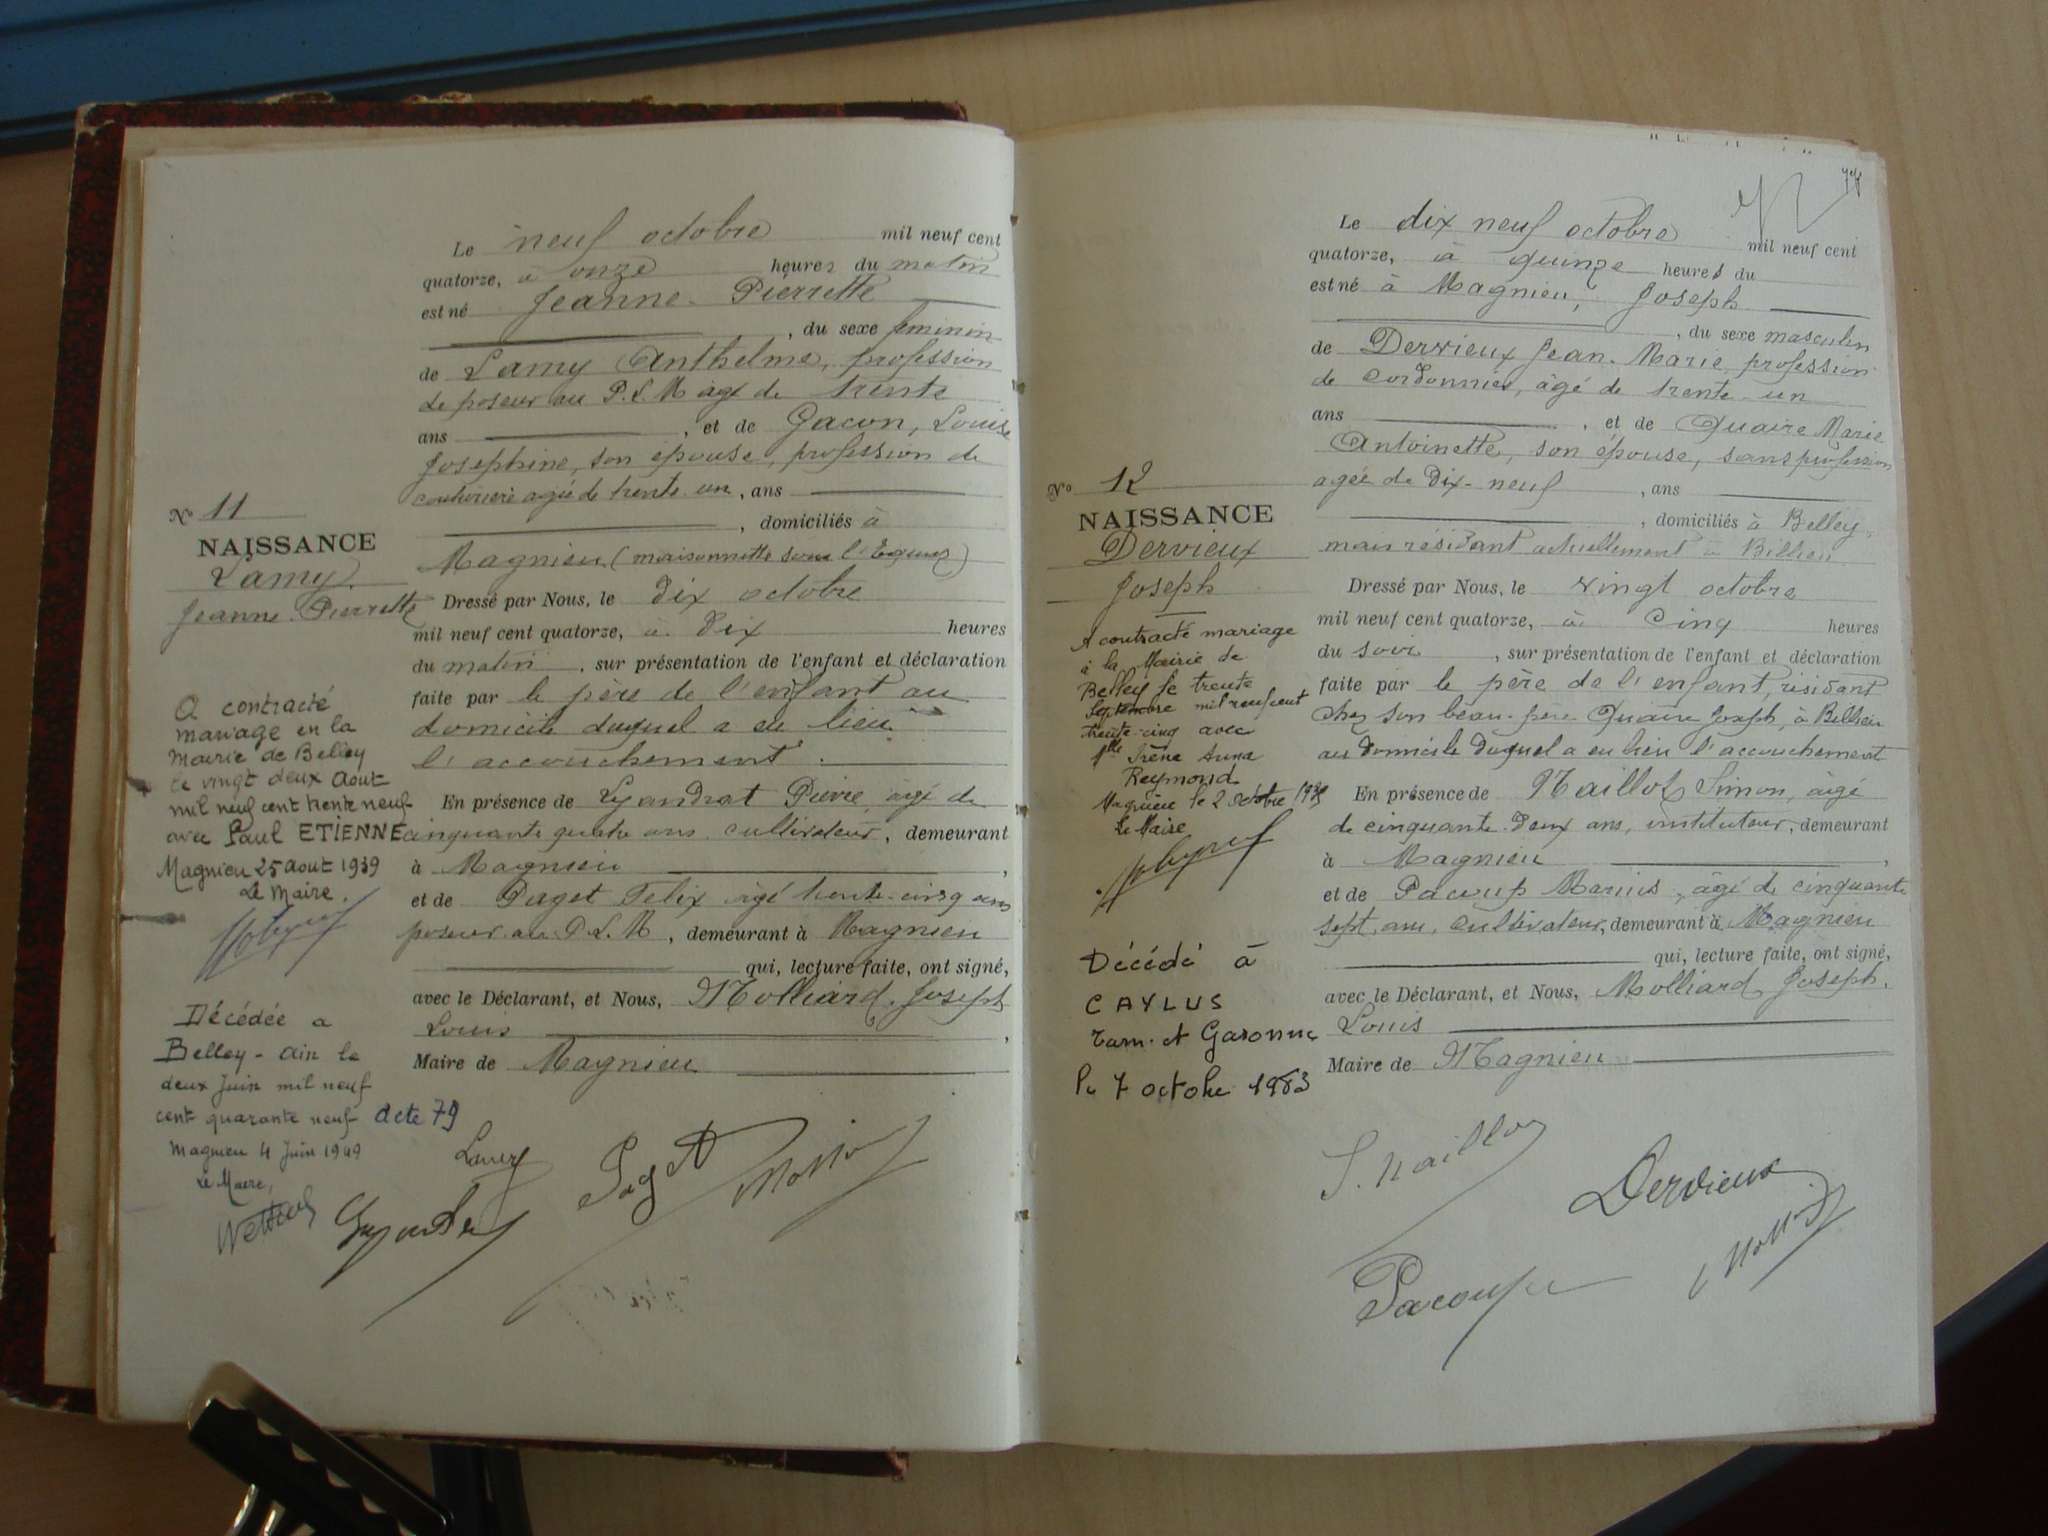 Le neuf octobre mil neuf cent
quatorze, à onze heures du matin
est né Jeanne-Pierrette
, du sexe féminin
de Lamy Anthelme, profession
de poseur au P.L.M agé de trente
ans , et de Gacon, Louise
Josephine, son épouse, profession de
couturière agée de trente un, ans
, domiciliés à
Magnieu (maisonnette sous l'
Dressé par Nous, le dix octobre
mil neuf cent quatorze, à dix heures
du matin, sur présentation de l'enfant et déclaration
faite par le père de l'enfant au
domicile duquel a eu lieu
l'accouchement.
En présence de Pierre, agé de
cinquante quatre ans, cultivateur, demeurant
à Magnieu ,
et de Paget Felix agé trente-cinq ans
poseur au P.L.M, demeurant à Magnieu
qui, lecture faite, ont signé,
avec le Déclarant, et Nous, Molliard, Joseph
Louis ,
Maire de Magnieu
N° 11
NAISSANCE
Lamy
Jeanne Pierrette
A contracté
mariage en la
Mairie de Belley
le vingt deux Aout
mil neuf cent trente neuf
avec Paul ETIENNE
Magnieu 25 aout 1939
Le Maire.
Décédée a
Belley - Ain le
deux Juin mil neuf
cent quarante neuf acte 79
Magnieu 4 Juin 1949
Le Maire,
Lamy
Paget
74
Le dix neuf octobre mil neuf cent
quatorze, à quinze heures du
est né à Magnieu, Joseph
, du sexe masculin
de Dervieux Jean-Marie, profession
de cordonnier, âgé de trente-un
ans , et de Quaire Marie
Antoinette, son épouse, sans profession
agée de Dix-neuf , ans
, domiciliés à Belley,
mais résidant actuellement à Billieu
Dressé par Nous, le vingt octobre
mil neuf cent quatorze, à cinq heures
du soir , sur présentation de l'enfant et déclaration
faite par le père de l'enfant, résidant
chez son beau-père Quaire Joseph, à Billieu
au domicile duquel a eu lieu l'accouchement
En présence de Maillot Simon, âgé
de cinquante-deux ans, instituteur, demeurant
à Magnieu ,
et de Marius, âgé de cinquante
sept ans, cultivateur, demeurant à Magnieu
qui, lecture faite, ont signé,
avec le Déclarant, et Nous, Molliard, Joseph,
Louis
Maire de Magnieu
N° 12
NAISSANCE
Dervieux
Joseph
A contracté mariage
à la Mairie de
Belley le trente
Septembre mil neuf cent
trente-cinq avec
Mlle Irène Anna
Reymond
Magnieu le 2 octobre 1935
Le Maire
Décédé à
CAYLUS
Tarn et Garonne
le 7 octobre 1983
Dervieux